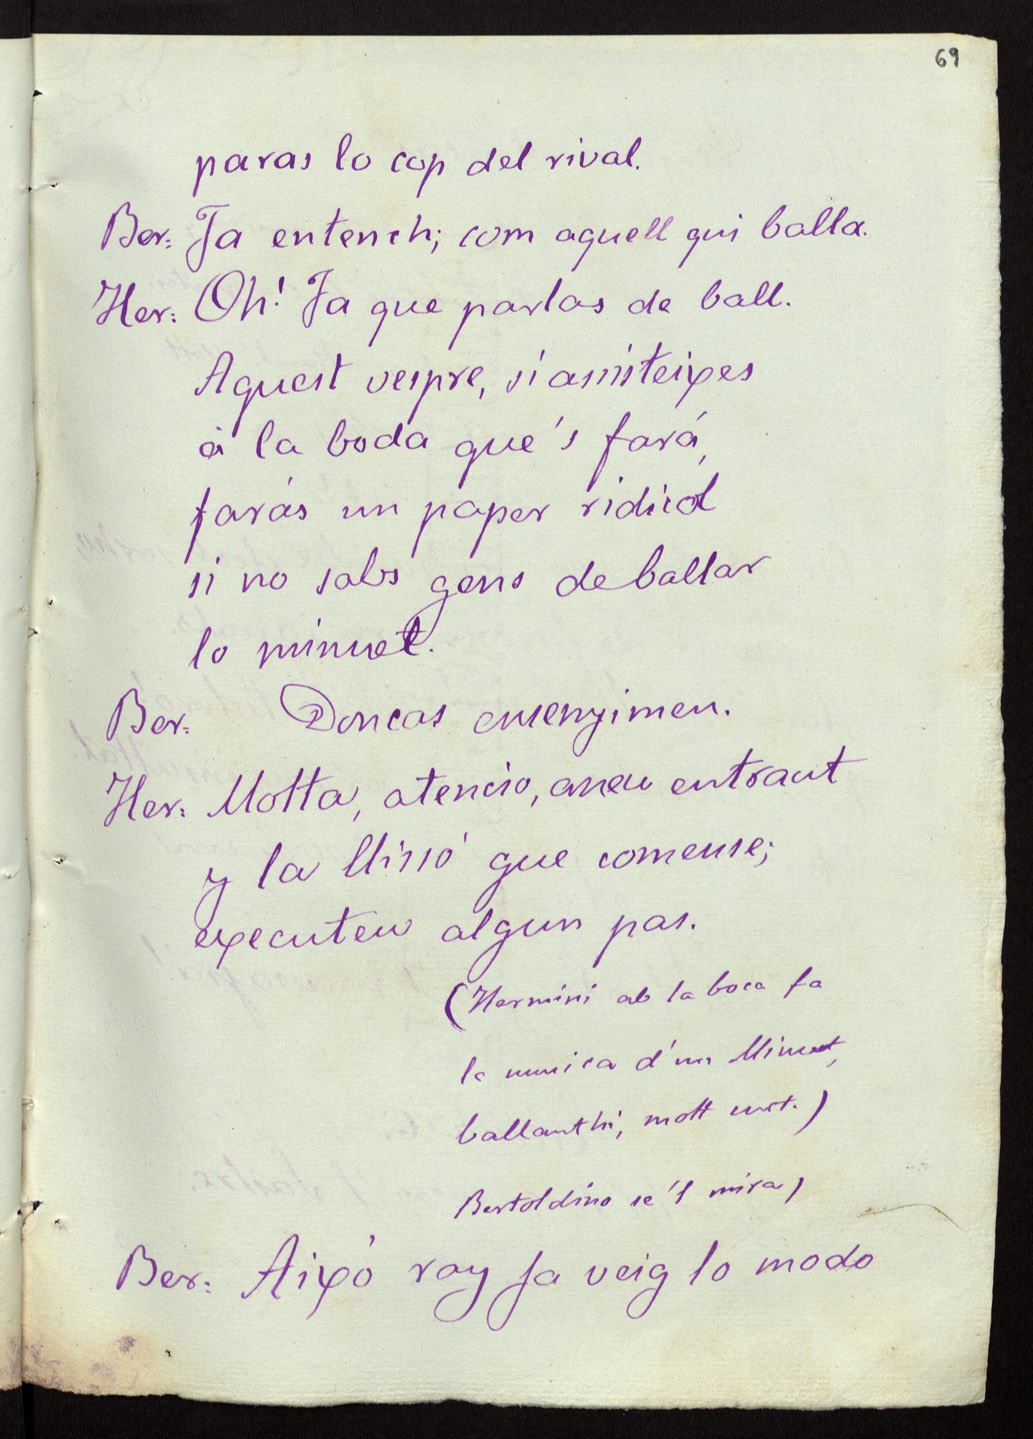 69
paras lo cop del rival.
Ber: Ja entench; com aquell qui balla.
Her: Oh! Ja que parlas de ball.
Aquest vespre, si assisteixes
á la boda que's fará,
farás un paper ridicol
si no sabs gens de ballar
lo minuet.
Ber: Doncas ensenyimen.
Her: Molta, atencio, aneu entrant
y la llissó que comense;
executeu algun pas.
(Hermini ab la boca fa
la musica d'un Minuet,
ballanthi, molt curt.)
Bertoldino se'l mira)
Ber: Aixó ray ja veig lo modo